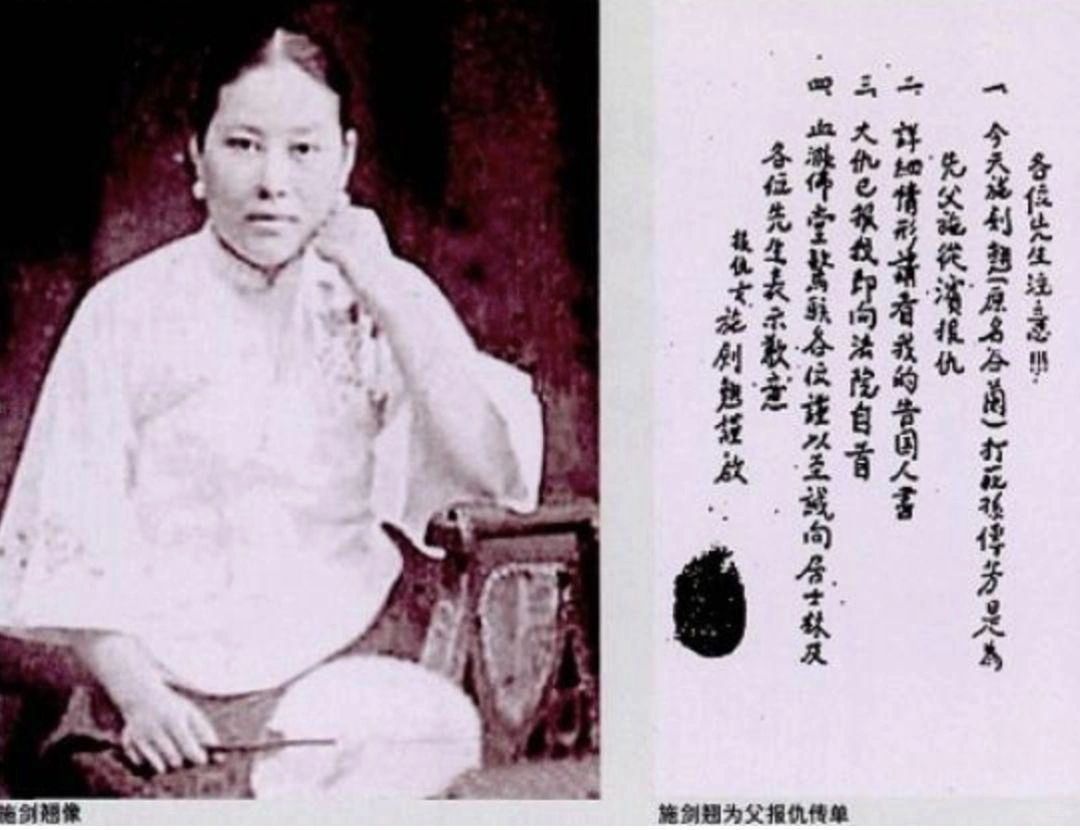 各位先生注意!!!
一、今天施剑翘(原名谷蘭)打死孫傳芳是為
先父施從濱报仇
二、詳細情形請看我的告国人書
三、大仇已报我即向法院自首
四、血濺佛堂驚駭各位謹以至誠向居士林及
各位先生表示歉意
报仇女施剑翘謹啟
施剑翘像
施剑翘为父报仇传单